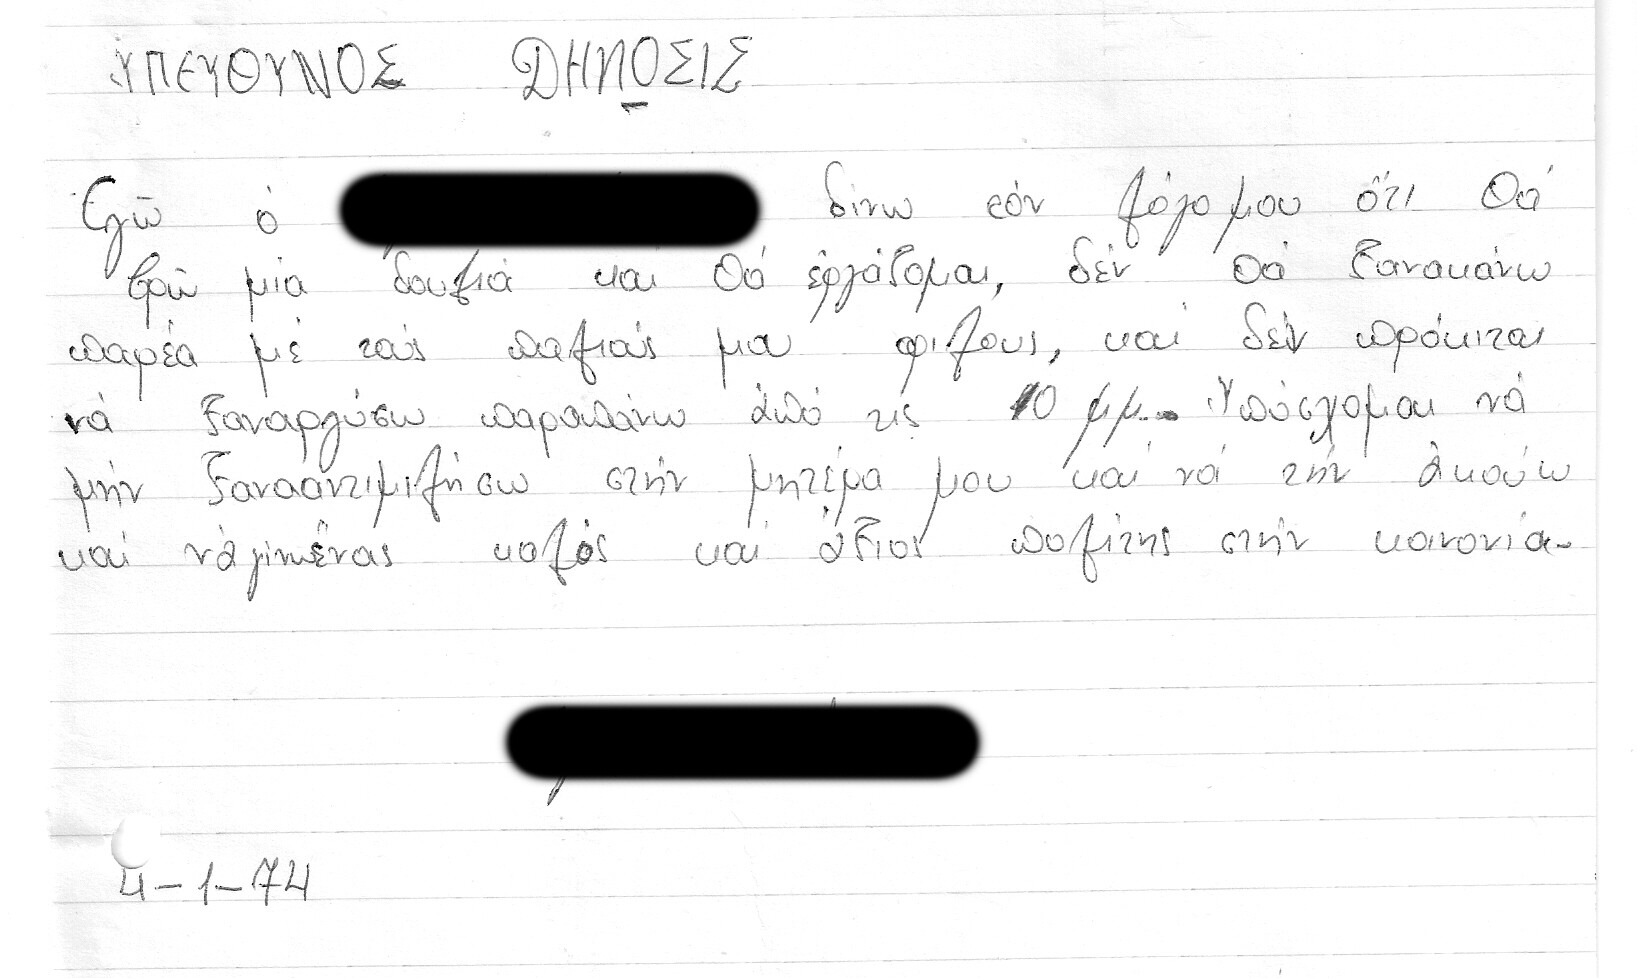 ΥΠΕΥΘΥΝΟΣ ΔΗΛΟΣΙΣ
Ἐγῶ ὁ δίνω τόν λόγο μου ὅτι θά
βρῶ μία δουλιά καί θά ἐργάζομαι, δέν θά ξανακάνω
παρέα μέ τούς παλιούς μου φίλους, καί δέν πρόκιται
νά ξαναργύσω παραπάνω ἀπό τις 10 μμ. Ὑπόσχομαι νά
μήν ξαναἀντιμιλήσω στήν μητέρα μου καί νά τήν ἀκούω
καί νά γίνω ἕνας καλός καί ἄξιος πολίτης στήν κοινονία.
4-1-74